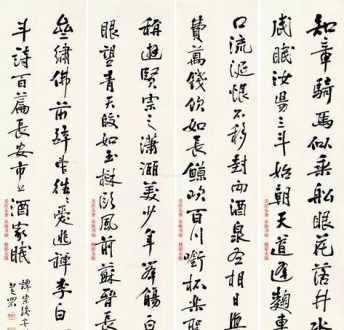 知章騎馬似乘船眼花落井水
底眠汝陽三斗始朝天道逢麴車
口流涎恨不移封向酒泉左相日興
費萬錢飲如長鯨吸百川銜杯樂聖
稱避賢宗之瀟灑美少年舉觴白
眼望青天皎如玉樹臨風前蘇晉長
齋繡佛前醉中往往愛逃禪李白一
斗詩百篇長安市上酒家眠